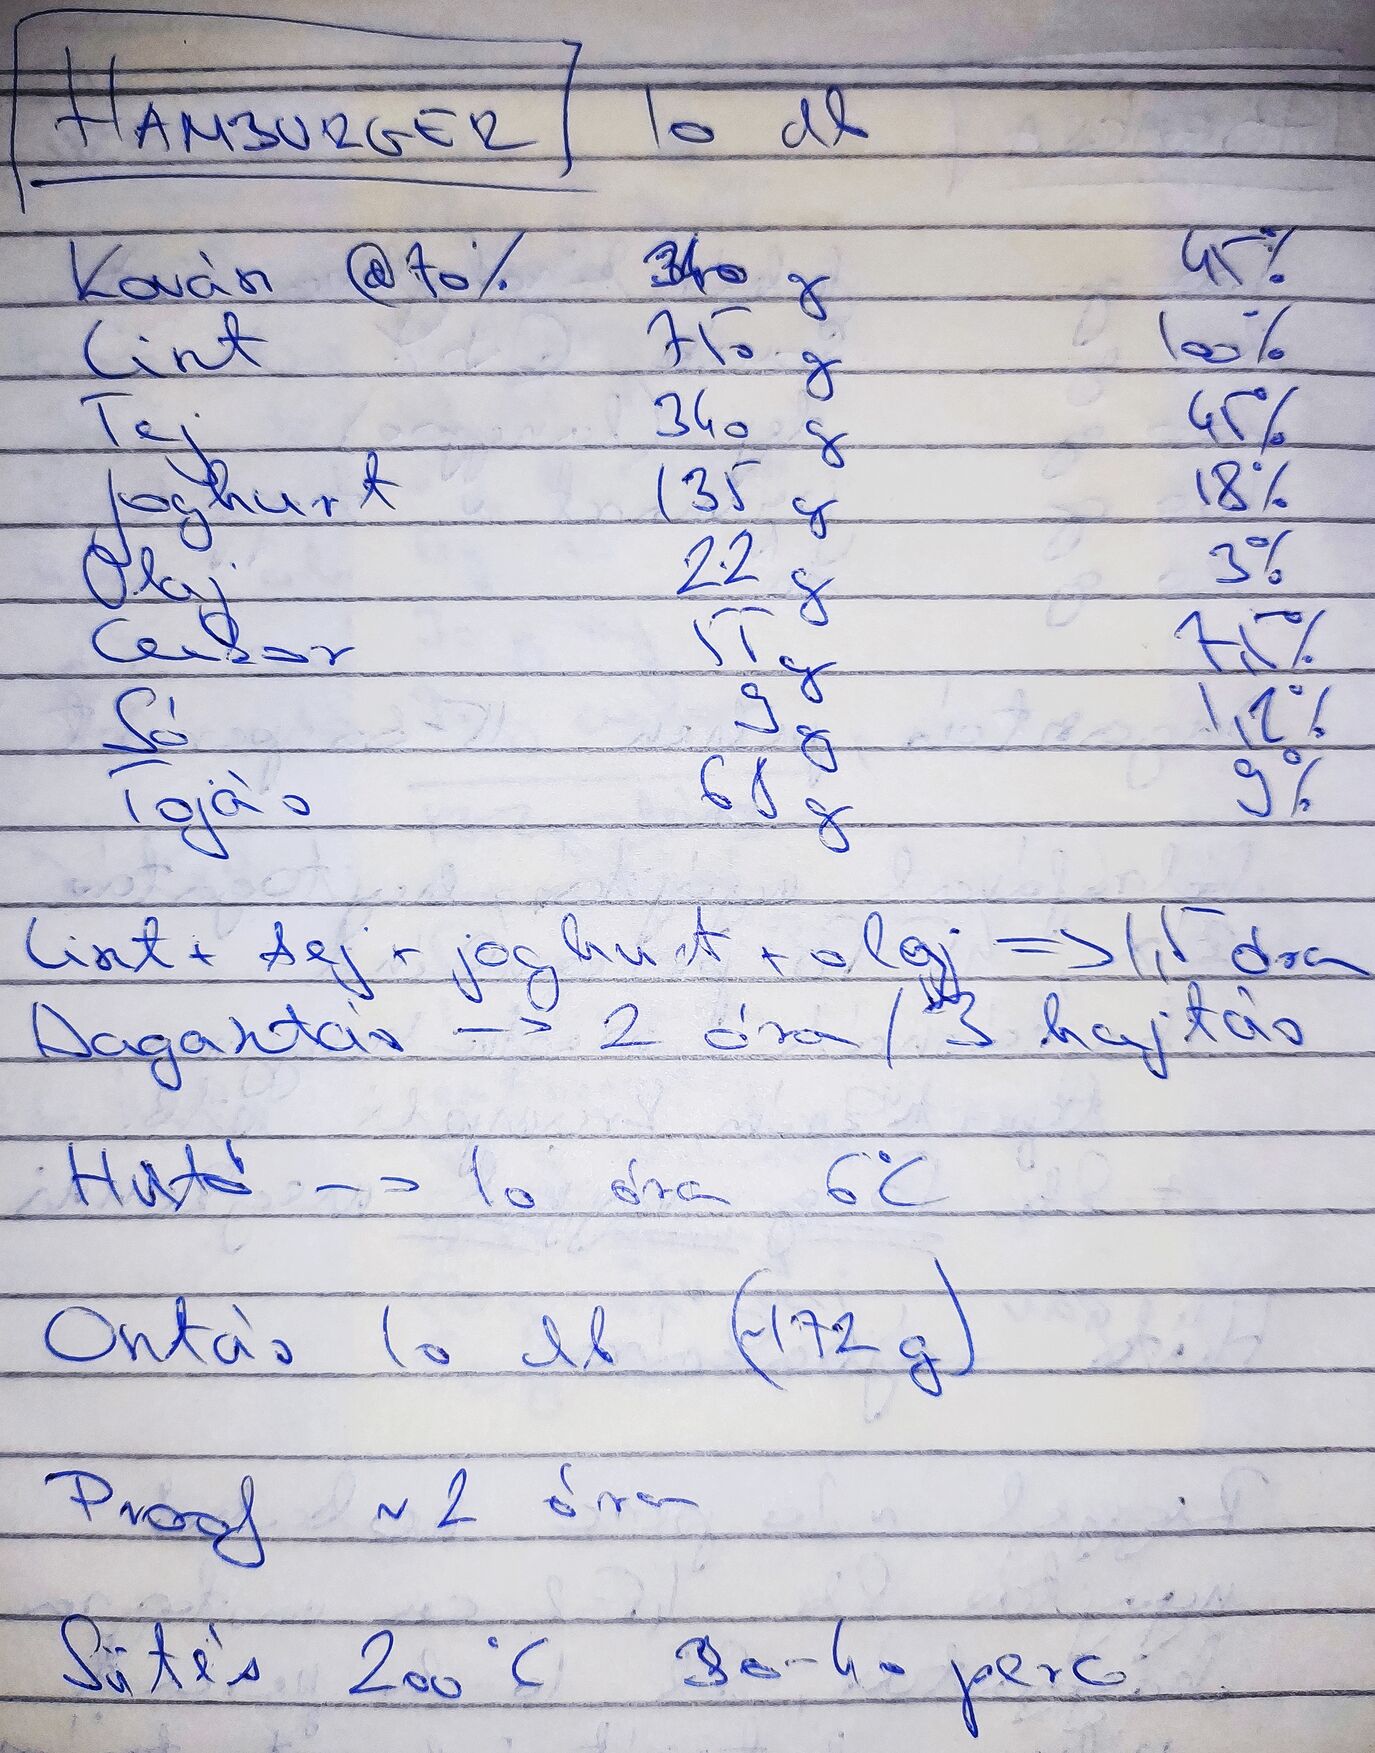 HAMBURGER 10 db
Kovász @70% 340 g 45%
Liszt 750 g 100%
Tej 340 g 45%
Joghurt 135 g 18%
Olaj 22 g 3%
Cukor 55 g 7,5%
Só 9 g 1,2%
Tojás 68 g 9%
Liszt + tej + joghurt + olaj => 1,5 óra
Dagasztás -> 2 óra / 3 hajtás
Hűtő -> 10 óra 6°C
Osztás 10 db (~172 g)
Proof ~2 óra
Sütés 200°C 30-40 perc